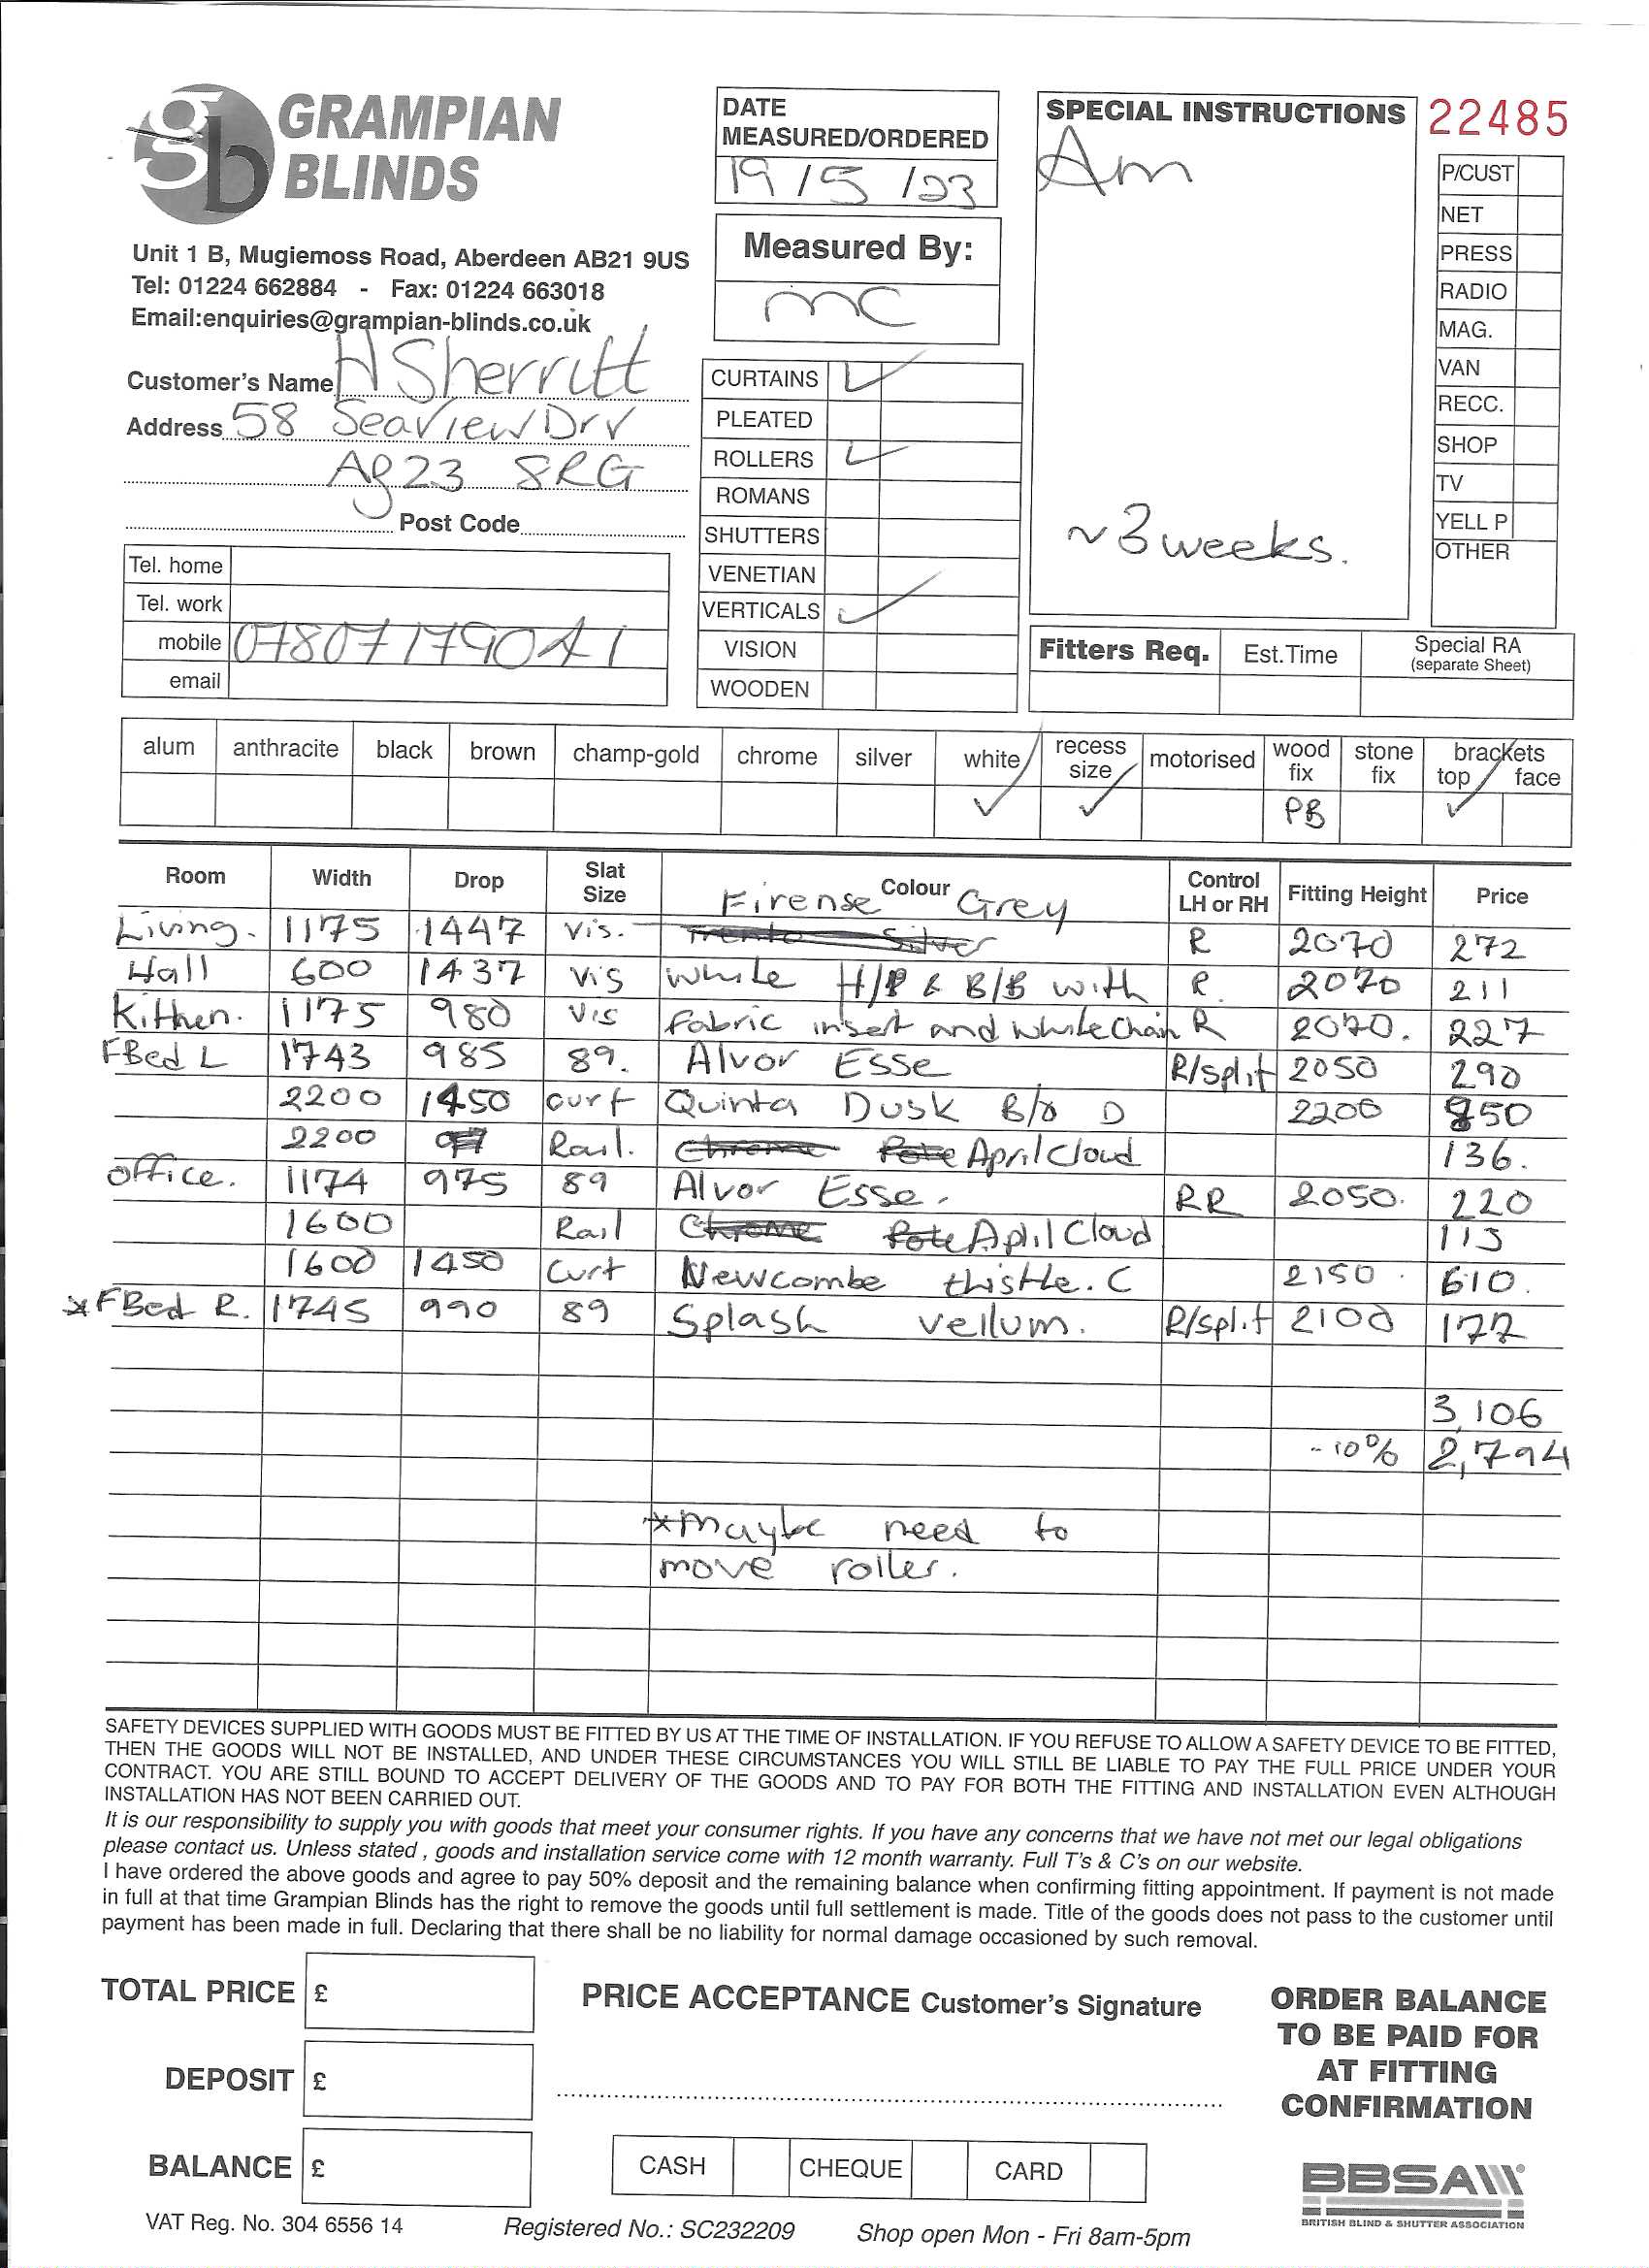 GRAMPIAN BLINDS
Unit 1 B, Mugiemoss Road, Aberdeen AB21 9US
Tel: 01224 662884 - Fax: 01224 663018
Email:enquiries@grampian-blinds.co.uk
Customer's Name H Sherritt
Address 58 Seaview Drv
AB23 8RG
Post Code
Tel. home
Tel. work
mobile 07807179041
email
DATE
MEASURED/ORDERED
19/5/23
Measured By:
MC
CURTAINS ✓
PLEATED
ROLLERS ✓
ROMANS
SHUTTERS
VENETIAN
VERTICALS ✓
VISION
WOODEN
SPECIAL INSTRUCTIONS
Am
~3 weeks.
22485
P/CUST
NET
PRESS
RADIO
MAG.
VAN
RECC.
SHOP
TV
YELL P
OTHER
Fitters Req. Est.Time Special RA
(separate Sheet)
alum anthracite black brown champ-gold chrome silver white recess size motorised wood fix stone fix brackets top face
✓ ✓ PB ✓
Room Width Drop Slat Size Colour Control LH or RH Fitting Height Price
Firense Grey
Living. 1175 1447 Vis. Trento Silver R 2070 272
Hall 600 1437 Vis White H/R & B/B with R. 2070 211
Kitchen. 1175 980 Vis Fabric insert and white Chain R 2070. 227
FBed L 1743 985 89. Alvor Esse R/split 2050 290
2200 1450 curt Quinta Dusk B/o D 2200 850
2200 Rail. Chrome Pole April Cloud 136.
office. 1174 975 89 Alvor Esse. RR 2050. 220
1600 Rail Chrome Pole April Cloud 113
1600 1450 Curt Newcombe thistle. C 2150. 610.
*FBed R. 1745 990 89 Splash vellum. R/split 2100 177
3,106
-10% 2,794
*Maybe need to
move roller.
SAFETY DEVICES SUPPLIED WITH GOODS MUST BE FITTED BY US AT THE TIME OF INSTALLATION. IF YOU REFUSE TO ALLOW A SAFETY DEVICE TO BE FITTED,
THEN THE GOODS WILL NOT BE INSTALLED, AND UNDER THESE CIRCUMSTANCES YOU WILL STILL BE LIABLE TO PAY THE FULL PRICE UNDER YOUR
CONTRACT. YOU ARE STILL BOUND TO ACCEPT DELIVERY OF THE GOODS AND TO PAY FOR BOTH THE FITTING AND INSTALLATION EVEN ALTHOUGH
INSTALLATION HAS NOT BEEN CARRIED OUT.
It is our responsibility to supply you with goods that meet your consumer rights. If you have any concerns that we have not met our legal obligations
please contact us. Unless stated , goods and installation service come with 12 month warranty. Full T's & C's on our website.
I have ordered the above goods and agree to pay 50% deposit and the remaining balance when confirming fitting appointment. If payment is not made
in full at that time Grampian Blinds has the right to remove the goods until full settlement is made. Title of the goods does not pass to the customer until
payment has been made in full. Declaring that there shall be no liability for normal damage occasioned by such removal.
TOTAL PRICE £
DEPOSIT £
BALANCE £
PRICE ACCEPTANCE Customer's Signature
CASH CHEQUE CARD
ORDER BALANCE
TO BE PAID FOR
AT FITTING
CONFIRMATION
BBSA
BRITISH BLIND & SHUTTER ASSOCIATION
VAT Reg. No. 304 6556 14 Registered No.: SC232209 Shop open Mon - Fri 8am-5pm